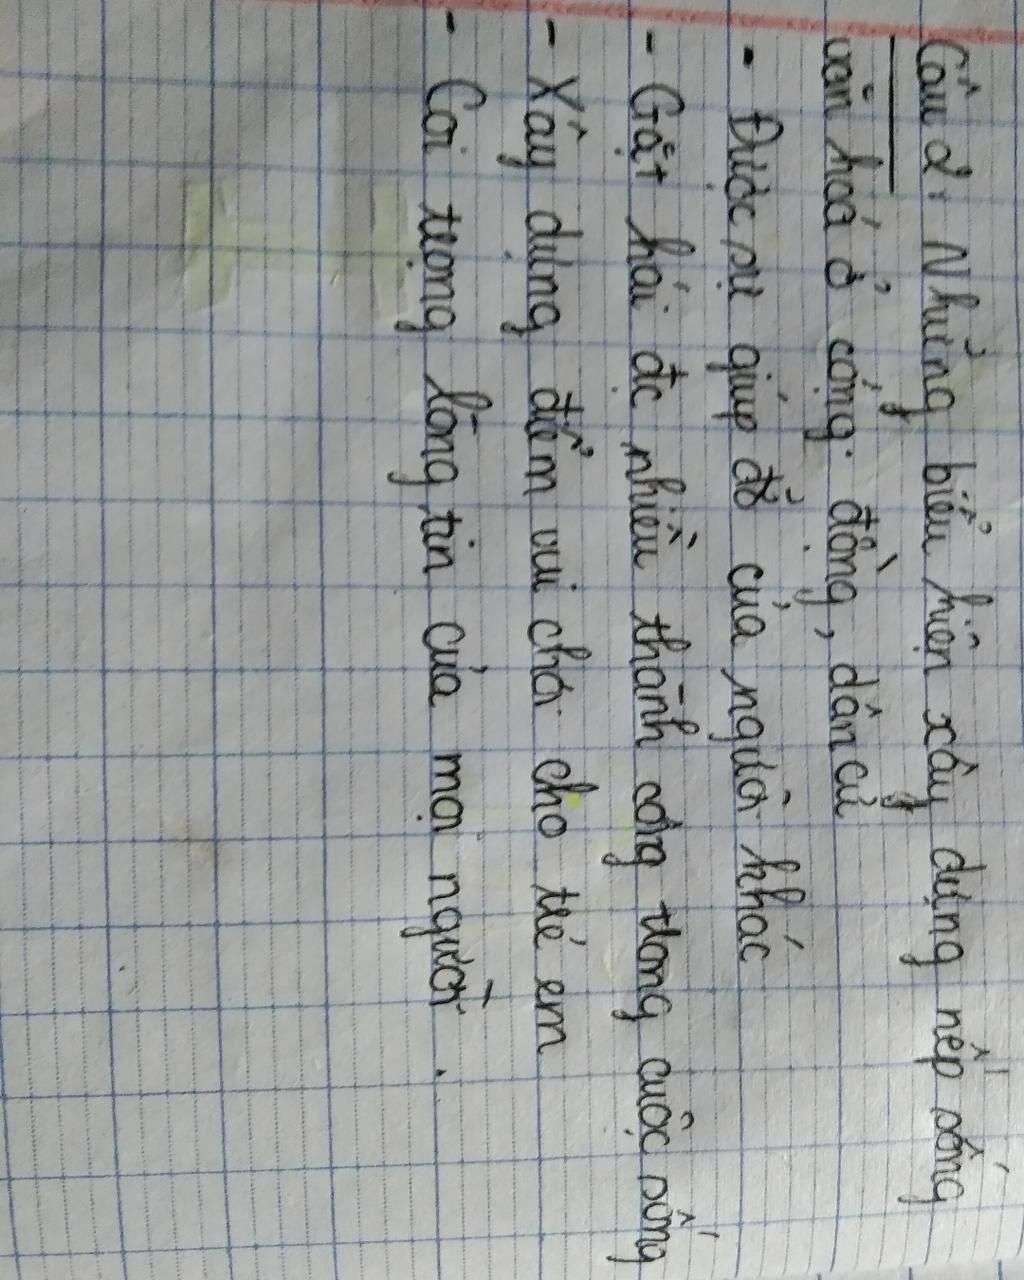 Câu 2: Những biểu hiện xây dựng nếp sống
văn hoá ở cộng đồng, dân cư
- Được sự giúp đỡ của người khác
- Gặt hái đc nhiều thành công trong cuộc sống
- Xây dựng điểm vui chơi cho trẻ em
- Coi trọng lòng tin của mọi người.